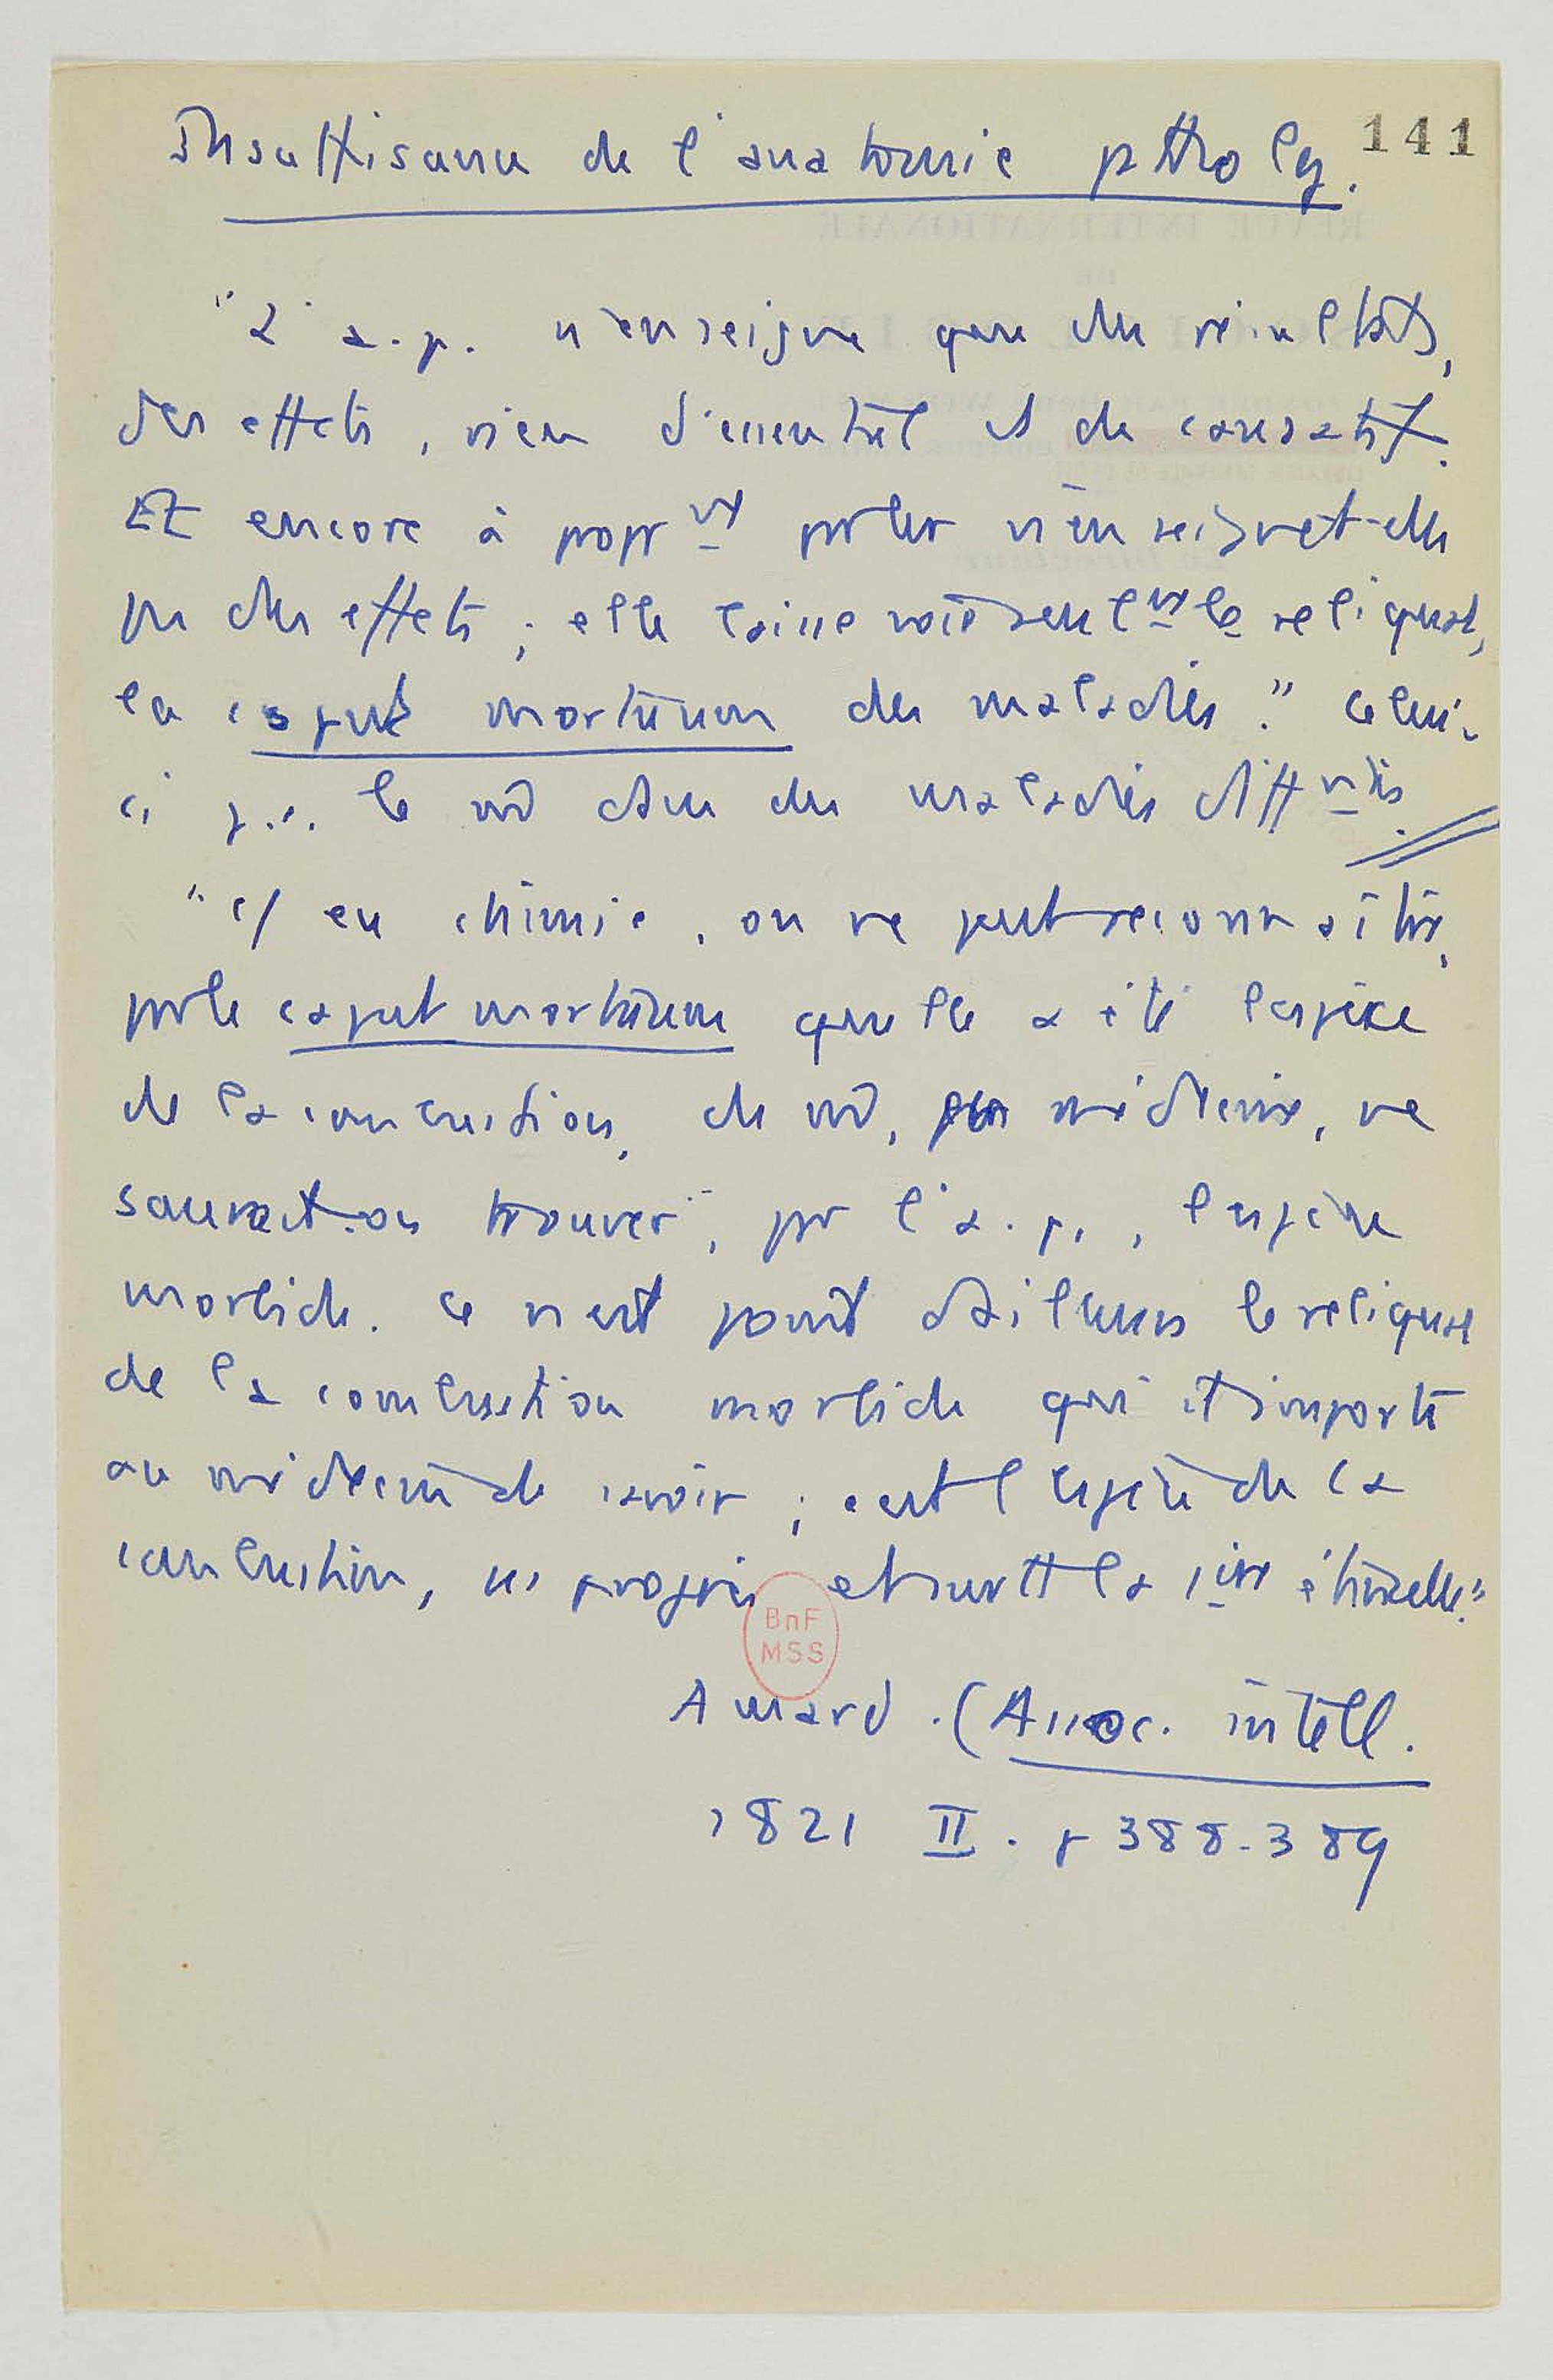 141
Insuffisance de l'anatomie pathog.
"L'a.p. n'enseigne que des résultats,
des effets, rien d'essentiel et de causatif.
Et encore à propr nt parler n'enseignet-elle
pas des effets ; elle laisse voir seul nt le reliquat,
le caput mortuum des maladies." Celui-
ci p.ê. le m̂ dans des maladies diff ntes.
"c/ en chimie, on ne peut reconnaître,
par le caput mortuum quelle a été l'espèce
de la combustion, de m̂, en médecine, ne
saurait-on trouver, par l'a.p., l'espèce
morbide. Ce n'est point d'ailleurs le reliquat
de la combustion morbide qu'il importe
au médecin de savoir ; c'est l'espèce de la
combustion, ses progrès et surtt la 1ère étincelle."
BnF
MSS
Amard. (Assoc. intell.
1821 II. p 388-389